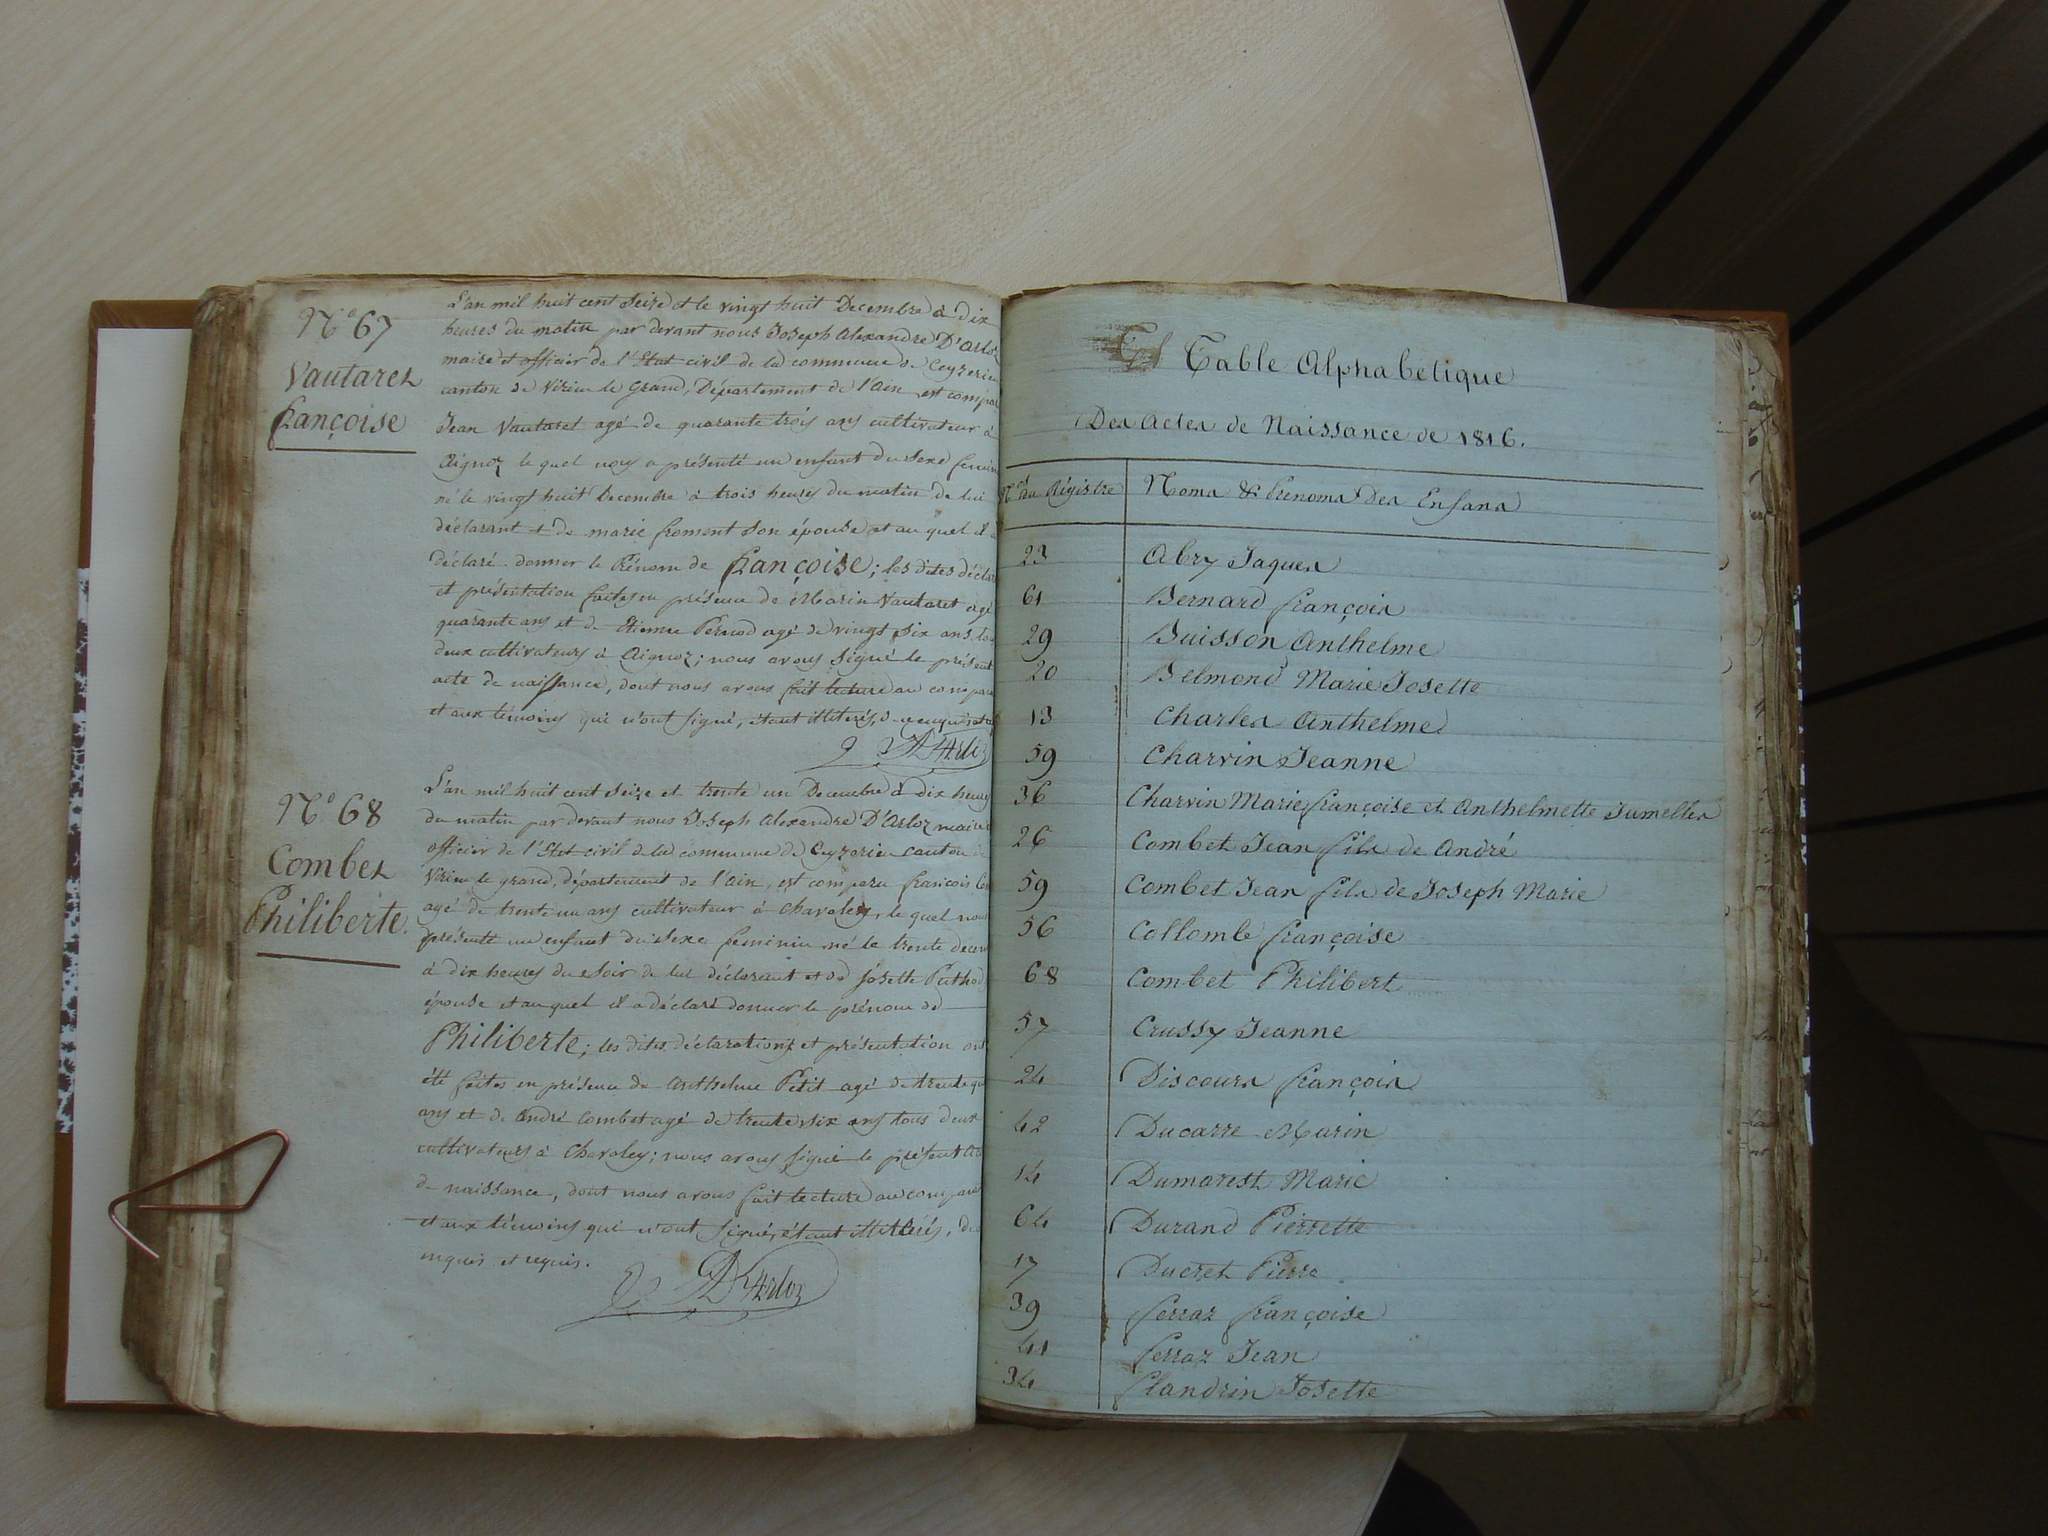 N° 67
Vautaret
françoise
L'an mil huit cent seize et le vingt huit Decembre à dix
heures du matin par devant nous Joseph Alexandre D'Arloz
maire et officier de l'Etat civil de la commune de Ceyzerieu
canton de Virieu le Grand, Département de l'Ain, est comparu
Jean Vautaret agé de quarante trois ans cultivateur à
Aignoz le quel nous a présenté un enfant du sexe feminin
né le vingt huit Decembre à trois heures du matin de lui
déclarant et de marie froment son épouse et au quel il a
déclaré donner le Prénom de françoise; les dites déclar
et présentation faites en présence de Marin Vautaret agé
quarante ans et de Etienne Pernod agé de vingt six ans, tous
deux cultivateurs à Aignoz; nous avons signé le présent
acte de naissance, dont nous avons fait lecture au compara
et aux témoins qui n'ont signé, étant illiterés, de
D'Arloz
N° 68
Combet
Philiberte.
L'an mil huit cent seize et trente un Decembre à dix heures
du matin par devant nous Joseph Alexandre D'Arloz maire
officier de l'Etat civil de la commune de Ceyzerieu canton de
Virieu le grand, département de l'Ain, est comparu francois
agé de trente un ans cultivateur à Chavoley, le quel nous
présenté un enfant du sexe feminin né le trente decem
à dix heures du soir de lui déclarant et de Josette Puthod
épouse et au quel il a déclaré donner le prénom de
Philiberte; les dites déclarations et présentation ont
été faites en présence de Anthelme Petit agé de trente
ans et de André Combet agé de trente six ans tous deux
cultivateurs à Chavoley; nous avons signé le présent
de naissance, dont nous avons fait lecture au comparant
et aux témoins qui n'ont signé, étant illiterés, de
inquis et requis.
D'Arloz
Table Alphabetique
Des Actes de Naissance de 1816.
Nos du Régistre Noms & Prenoms Des Enfans
23 Abry Jaques
61 Bernard françois
29 Buisson Anthelme
20 Belmond Marie Josette
13 Charles Anthelme
59 Charvin Jeanne
36 Charvin Marie françoise et Anthelmette Jumelles
26 Combet Jean fils de André
59 Combet Jean fils de Joseph Marie
56 Collombe françoise
68 Combet Philibert
57 Crussy Jeanne
24 Discours françois
42 Ducarre Marin
14 Dumarest Marie
64 Durand Pierrette
17 Ducret Pierre
39 ferraz françoise
41 ferraz Jean
34 flandrin Josette